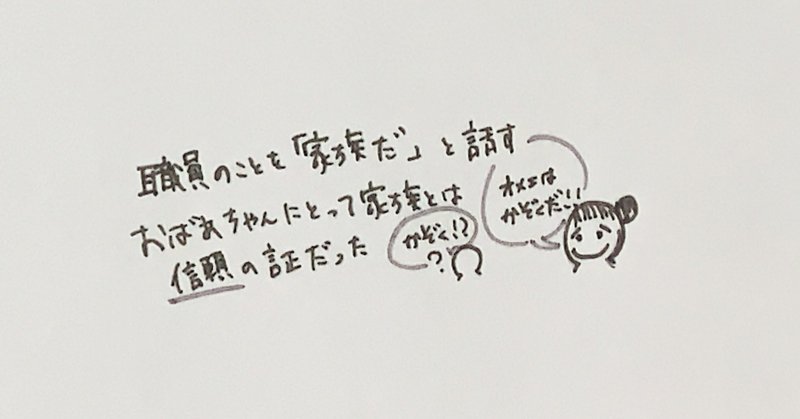 職員のことを「家族だ」と話す
おばあちゃんにとって家族とは
信頼の証だった
かぞく!?
?
オメエは
かぞくだ!!